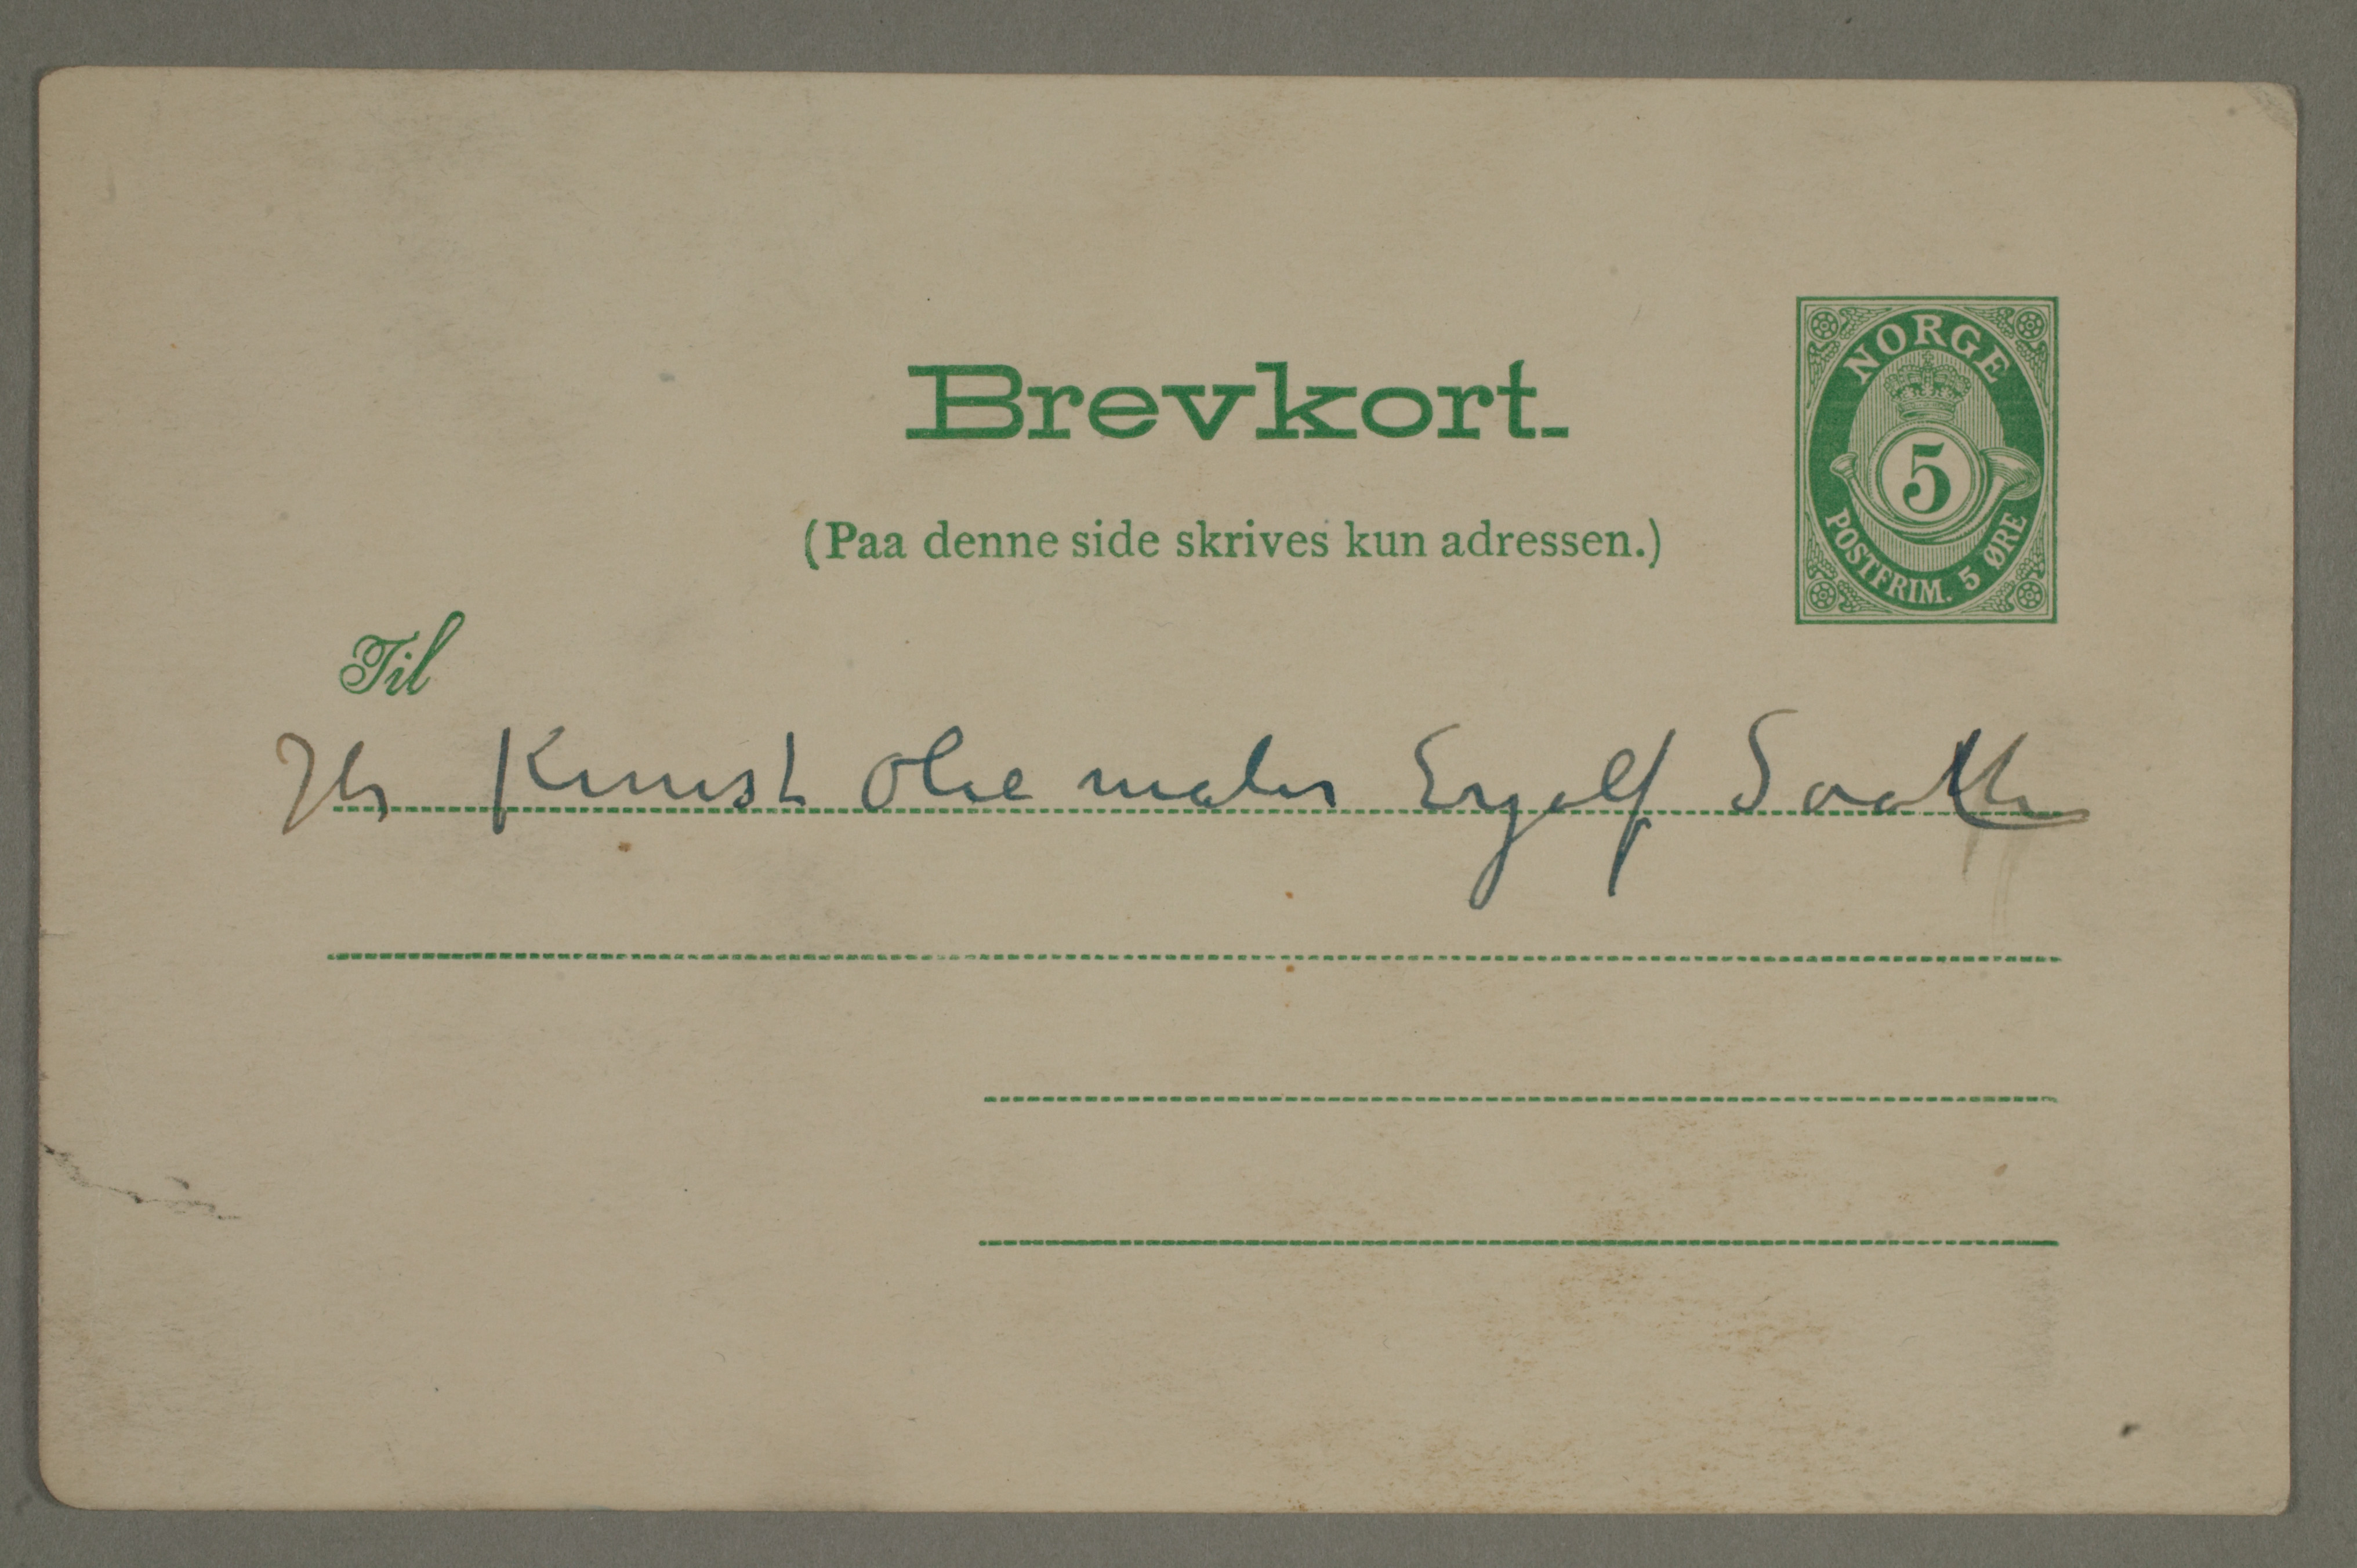 Brevkort.
NORGE
5
POSTFRIM. 5 ØRE
(Paa denne side skrives kun adressen.)
Til
Hr Kunst Olie maler